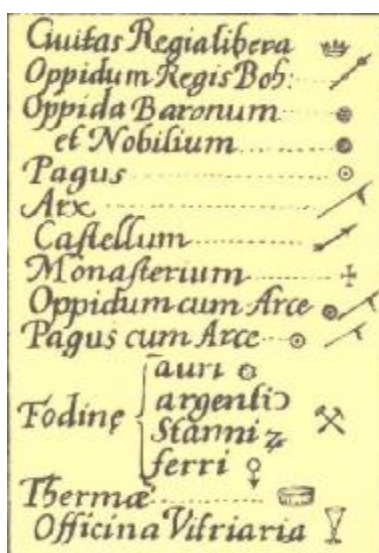 Ciuitas Regia libera
Oppidum Regis Boh:
Oppida Baronum
et Nobilium
Pagus
Arx
Castellum
Monasterium
Oppidum cum Arce
Pagus cum Arce
auri
argenti
Fodinę
Stanni
ferri
Thermæ
Officina Vitriaria